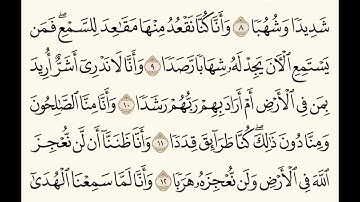 شَدِيدًا وَشُهُبًا ٨ وَأَنَّا كُنَّا نَقْعُدُ مِنْهَا مَقَٰعِدَ لِلسَّمْعِۖ فَمَن
يَسْتَمِعِ ٱلْـَٔانَ يَجِدْ لَهُۥ شِهَابًا رَّصَدًا ٩ وَأَنَّا لَا نَدْرِىٓ أَشَرٌّ أُرِيدَ
بِمَن فِى ٱلْأَرْضِ أَمْ أَرَادَ بِهِمْ رَبُّهُمْ رَشَدًا ١٠ وَأَنَّا مِنَّا ٱلصَّٰلِحُونَ
وَمِنَّا دُونَ ذَٰلِكَۖ كُنَّا طَرَآئِقَ قِدَدًا ١١ وَأَنَّا ظَنَنَّآ أَن لَّن نُّعْجِزَ
ٱللَّهَ فِى ٱلْأَرْضِ وَلَن نُّعْجِزَهُۥ هَرَبًا ١٢ وَأَنَّا لَمَّا سَمِعْنَا ٱلْهُدَىٰٓ